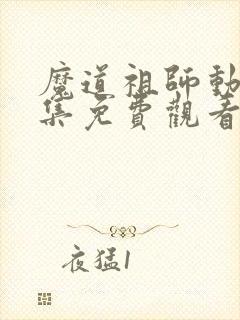 魔道祖師動
集免費觀看
夜猛1